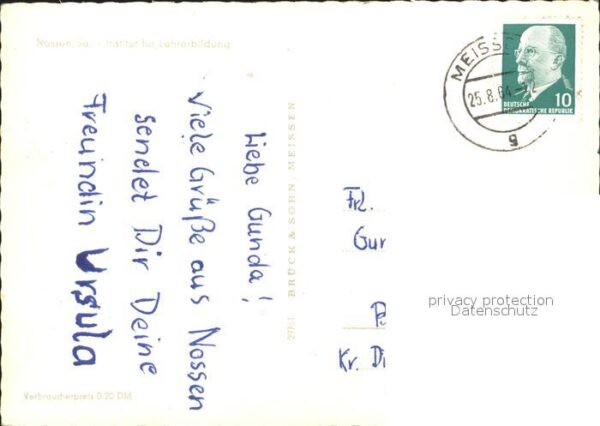 Nossen, Sa. - Institut für Lehrerbildung
Liebe Gunda!
Viele Grüße aus Nossen
sendet Dir Deine
Freundin Ursula
BRÜCK & SOHN, MEISSEN
Verbraucherpreis 0.20 DM
MEISSEN
25.8.64
DEUTSCHE
DEMOKRATISCHE REPUBLIK
10
Frl.
Gun
Kr. Di
privacy protection
Datenschutz